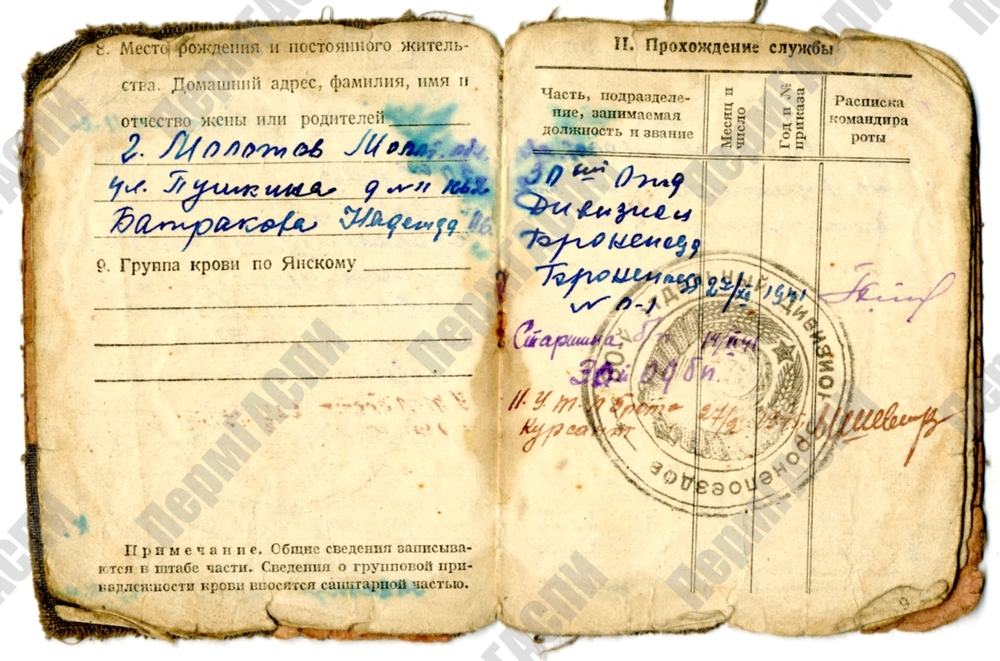 8. Место рождения и постоянного житель-
ства. Домашний адрес, фамилия, имя и
отчество жены или родителей
г. Молотов Молот. обл.
ул. Пушкина д №11 кв 2
Батракова Надежда
9. Группа крови по Янскому
Примечание. Общие сведения записыва-
ются в штабе части. Сведения о групповой при-
надлежности крови вносятся санитарной частью.
II. Прохождение службы
Часть, подразделе-
ние, занимаемая
должность и звание
Месяц и
число
Год и №
приказа
Расписка
командира
роты
30ый Отд
Дивизион
Бронепоезд
Бронепоезд
N П-1
1941
Старшина
ой одбп.
Курсант 27/2
ДИВИЗИОН БРОНЕПОЕЗДОВ
9
ПермГАСПИ